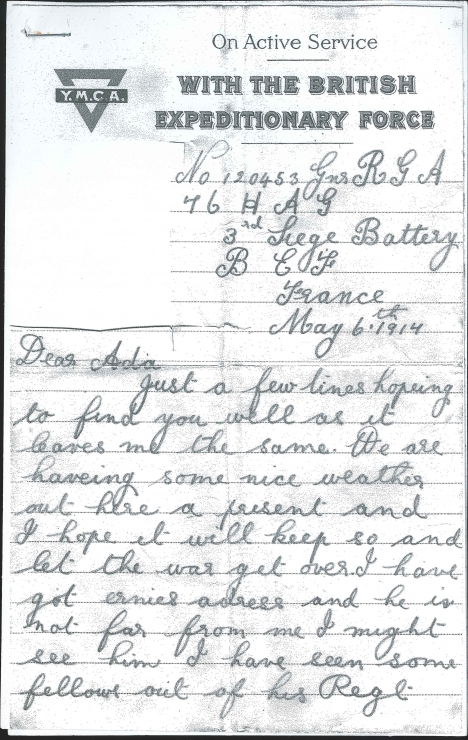 On Active Service
WITH THE BRITISH
EXPEDITIONARY FORCE
Y.M.C.A.
No 120453 Gnr R G A
76 H A G
3rd Siege Battery
B E F
France
May 6.th 1917
Dear Ada
Just a few lines hoping
to find you well as it
leaves me the same. We are
haveing some nice weather
out here a present and
I hope it will keep so and
let the war get over. I have
got ernies adress and he is
not far from me I might
see him I have seen some
fellows out of his Regt